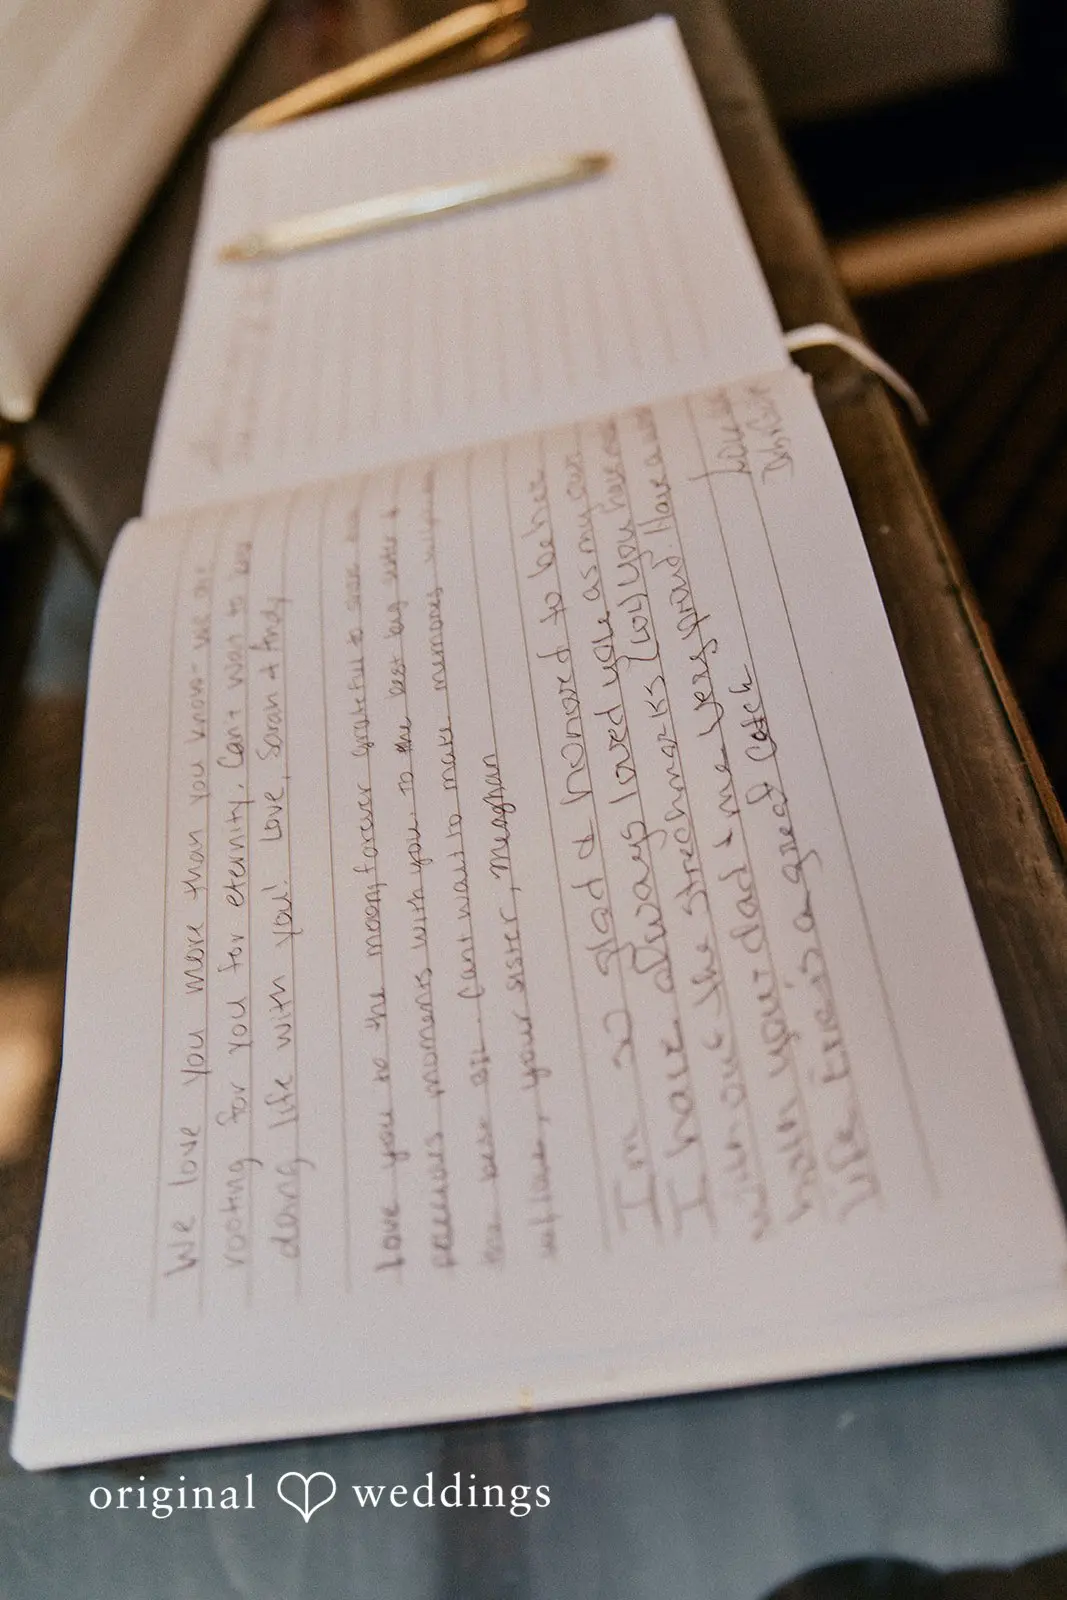 We love you more than you know - we are
rooting for you for eternity. Can't wait to
doing life with you! Love, Sarah & Andy
Love you to the moon, forever grateful to share
precious moments with you. to the best big sister &
the best BIL. Can't wait to make memories
w/ love, your sister, Meaghan
I'm so glad & honored to be her
I have always loved you as my own
without the stretchmarks (lol) you have
both your dad & me very proud. Have a
life time is a great catch
original weddings